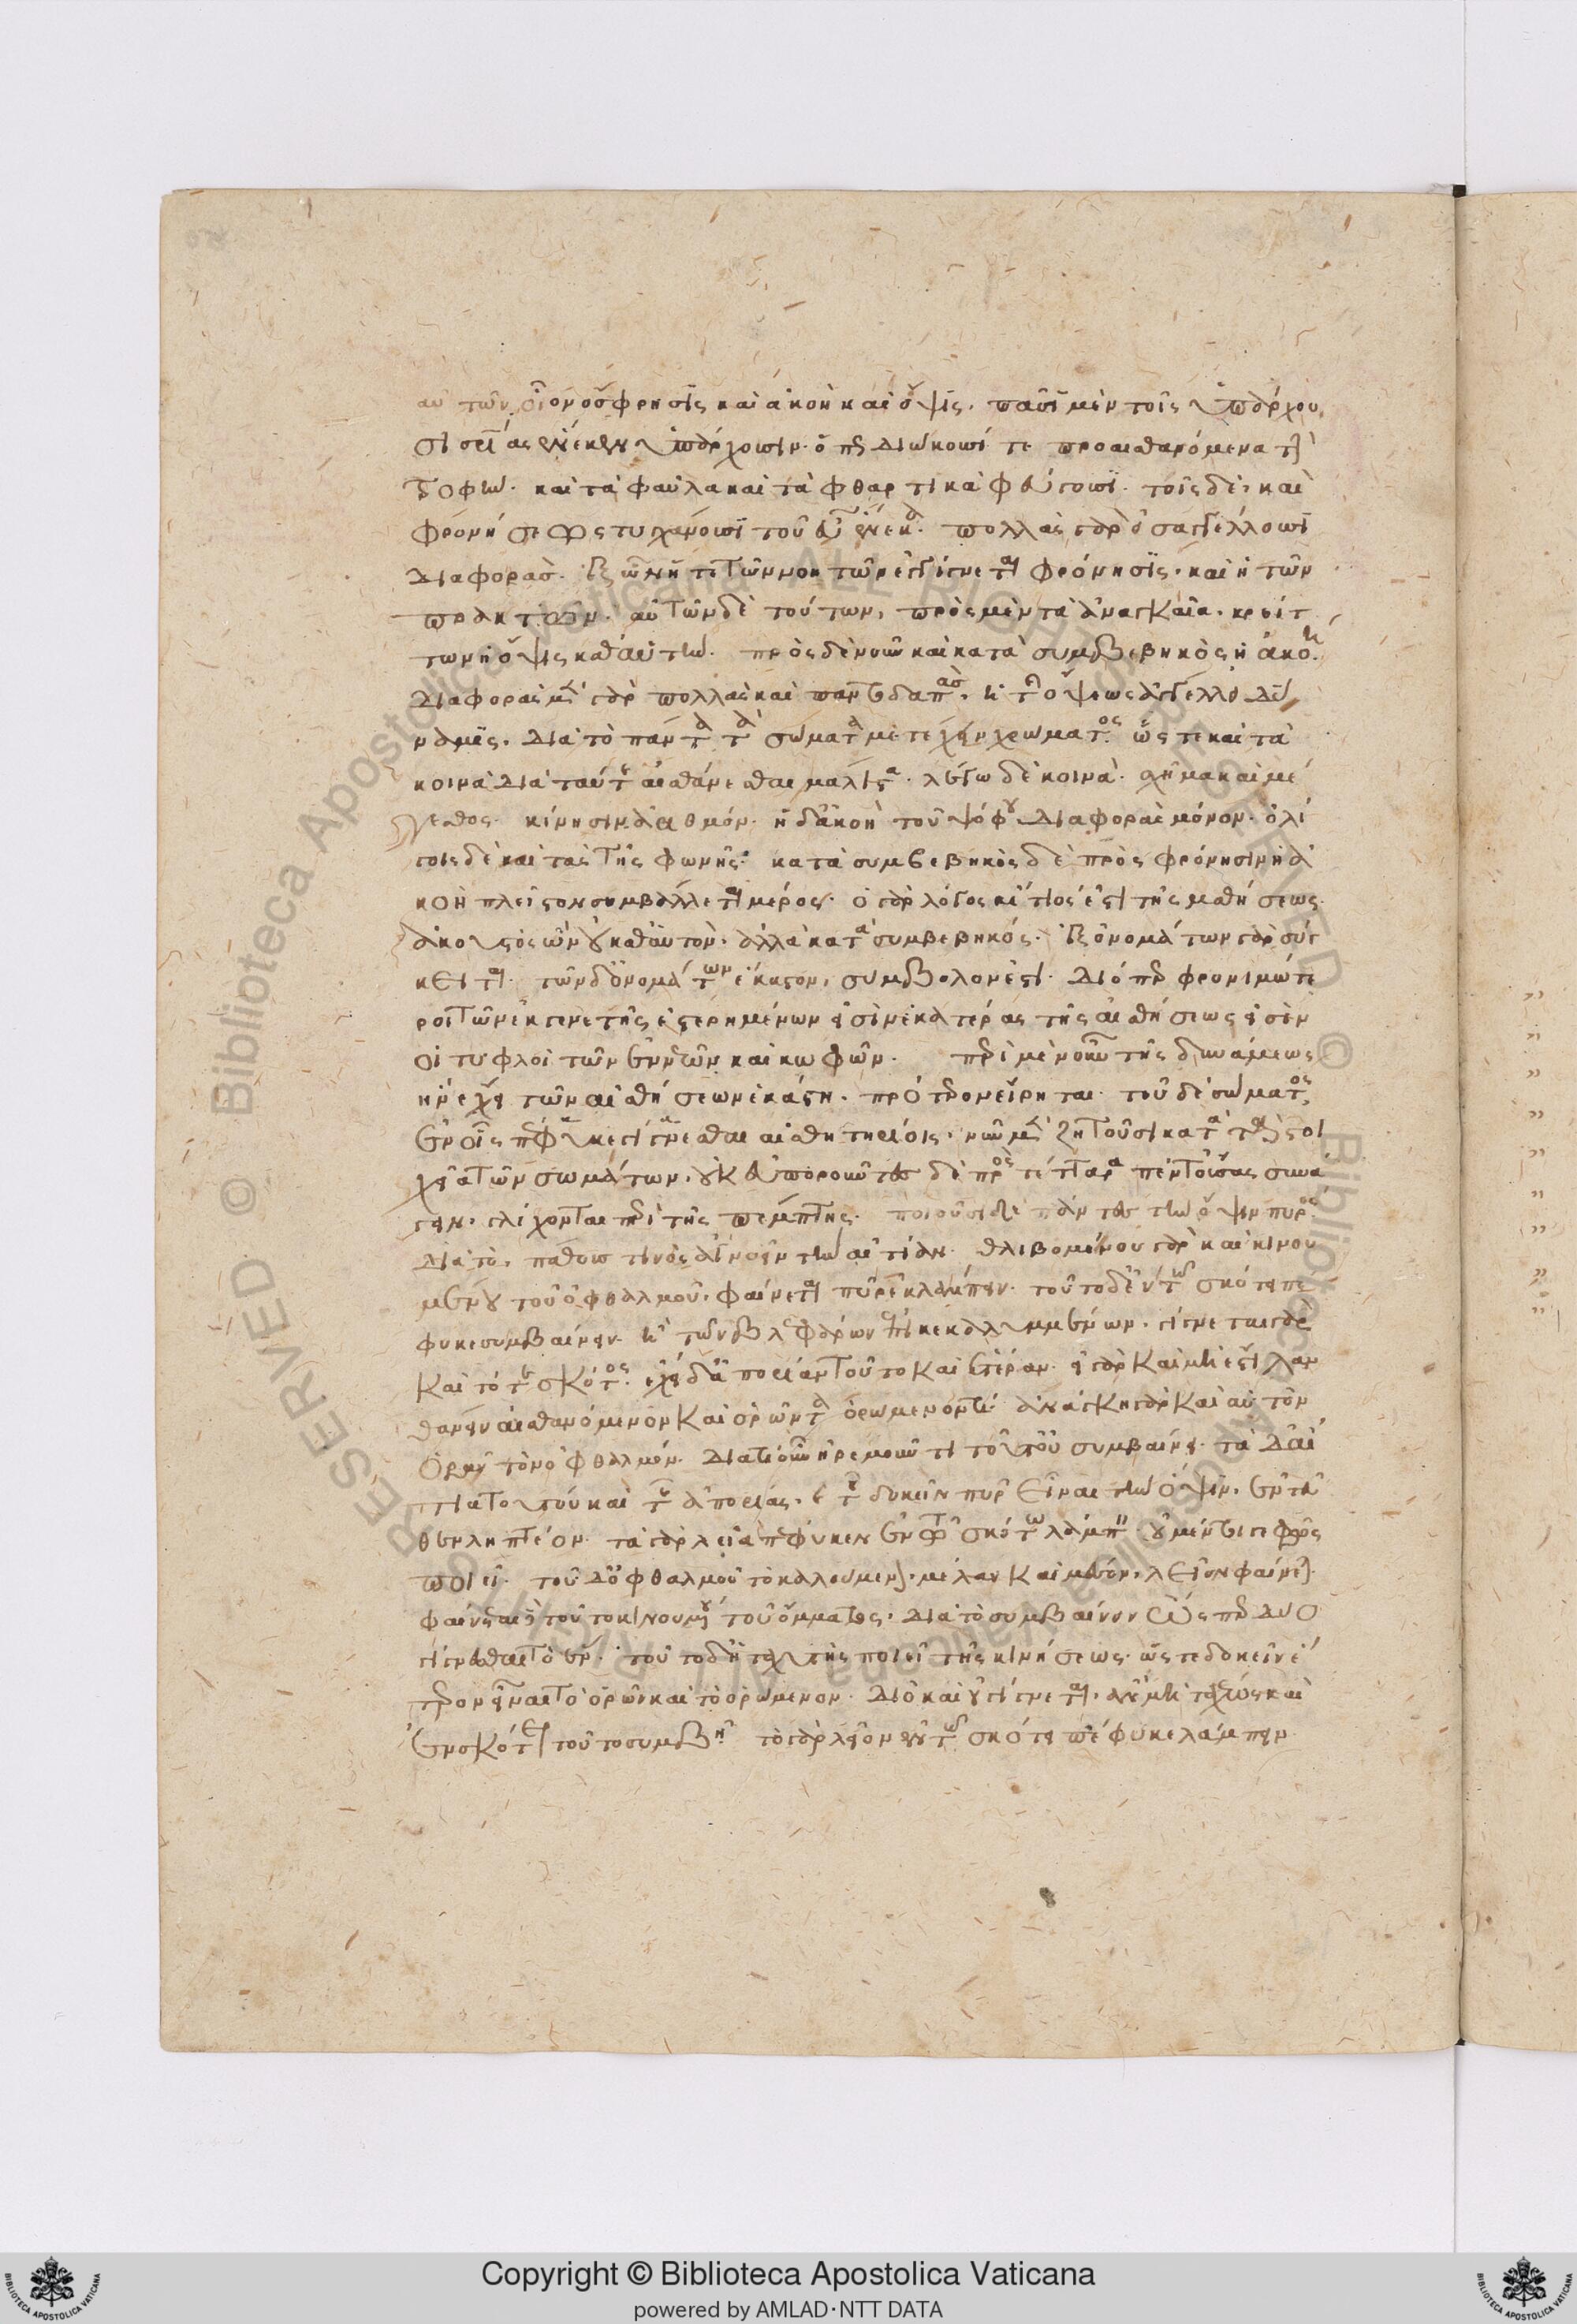 αυτῶν οἷον ὄσφρησις καὶ ἀκοὴ καὶ ὄψις. πᾶσι μὲν τοῖς ὑπάρχου
σι σωτηρίας ἕνεκεν ὑπάρχουσιν. ὅπως διώκωσί τε προαισθανόμενα τὴν
τροφὴν. καὶ τὰ φαῦλα καὶ τὰ φθαρτικὰ φεύγωσι. τοῖς δὲ, καὶ
φρονήσεως τυγχάνουσι τοῦ εὖ ἕνεκα. πολλὰς γὰρ εἰσαγγέλλουσι
διαφοράς. ἐξ ὧν ἥ τε τῶν νοητῶν ἐγγίγνεται φρόνησις. καὶ ἡ τῶν
πρακτῶν. αὐτῶν δὲ τούτων, πρὸς μὲν τὰ ἀναγκαῖα. κρείτ
των ἡ ὄψις καθ' αὑτήν. πρὸς δὲ νοῦν καὶ κατὰ συμβεβηκὸς ἡ ἀκοή.
διαφορὰς μὲν γὰρ πολλὰς καὶ παντοδαπὰς. ἡ τῆς ὄψεως ἀγγέλλει δύ
ναμις. διὰ τὸ πάντα τὰ σώματα μετέχειν χρώματος. ὥστε καὶ τὰ
κοινὰ διὰ ταύτης αἰσθάνεσθαι μάλιστα. λέγω δὲ κοινὰ. σχῆμα καὶ μέ
γεθος. κίνησιν ἀριθμόν. ἡ δ' ἀκοὴ τοῦ ψόφου διαφορὰς μόνον. ὀλί
γοις δὲ καὶ τὰς τῆς φωνῆς. κατὰ συμβεβηκὸς δὲ πρὸς φρόνησιν ἡ ἀ
κοὴ πλεῖστον συμβάλλεται μέρος. ὁ γὰρ λόγος αἴτιός ἐστι τῆς μαθήσεως.
ἀκουστὸς ὢν οὐ καθ' αὑτὸν. ἀλλὰ κατὰ συμβεβηκός. ἐξ ὀνομάτων γὰρ σύγ
κειται. τῶν δ' ὀνομάτων ἕκαστον, σύμβολόν ἐστι. διόπερ φρονιμώτε
ροι τῶν ἐκ γενετῆς ἐστερημένων εἰσὶν ἑκατέρας τῆς αἰσθήσεως εἰσὶν
οἱ τυφλοὶ τῶν ἐνεῶν καὶ κωφῶν. περὶ μὲν οὖν τῆς δυνάμεως
ἣν ἔχει τῶν αἰσθήσεων ἑκάστη. πρότερον εἴρηται. τοῦ δὲ σώματος
ἐν οἷς πέφυκε γίγνεσθαι αἰσθητηρίοις. νῦν μὲν ζητοῦσι κατὰ τὰ στοι
χεῖα τῶν σωμάτων. οὐκ εὐποροῦντες δὲ πρὸς τέτταρα πέντ' οὔσας συνά
γειν. γλίχονται περὶ τῆς πέμπτης. ποιοῦσι δὲ πάντες τὴν ὄψιν πυρὸς.
διὰ τὸ, πάθους τινὸς ἀγνοεῖν τὴν αἰτίαν. θλιβομένου γὰρ καὶ κινου
μένου τοῦ ὀφθαλμοῦ. φαίνεται πῦρ ἐκλάμπειν. τοῦτο δ' ἐν τῷ σκότει πέ
φυκε συμβαίνειν. ἢ τῶν βλεφάρων ἐπικεκαλυμμένων. γίγνεται γὰρ
καὶ τότε σκότος. ἔχει δ' ἀπορίαν τοῦτο καὶ ἑτέραν. εἰ γὰρ καὶ μὴ ἔστι λαν
θάνειν αἰσθανόμενον καὶ ὁρῶντα ὁρώμενόν τι. ἀνάγκη γὰρ καὶ αὐτὸν
ὁρᾶν τὸν ὀφθαλμόν. διατί οὖν ἠρεμοῦντι τοῦτ' οὐ συμβαίνει. τὰ δ' αἴ
τια τούτου καὶ τῆς ἀπορίας. καὶ τοῦ δοκεῖν πῦρ εἶναι τὴν ὄψιν. ἐντεῦ
θεν ληπτέον. τὰ γὰρ λεῖα πέφυκεν ἐν τῷ σκότῳ λάμπειν. οὐ μέντοι γε φῶς
ποιεῖ. τοῦ δ' ὀφθαλμοῦ τὸ καλούμενον. μέλαν καὶ μέσον. λεῖον φαίνεται.
φαίνεται δὲ τοῦτο κινουμένου τοῦ ὄμματος. διὰ τὸ συμβαίνειν ὥσπερ δύο
γίγνεσθαι τὸ ἕν. τοῦτο δ' ἡ ταχυτὴς ποιεῖ τῆς κινήσεως. ὥστε δοκεῖν ἕ
τερον εἶναι τὸ ὁρῶν καὶ τὸ ὁρώμενον. διὸ καὶ οὐ γίγνεται. ἂν μὴ ταχέως καὶ
ἐν σκότει τοῦτο συμβῇ. τὸ γὰρ λεῖον ἐν τῷ σκότει πέφυκε λάμπειν